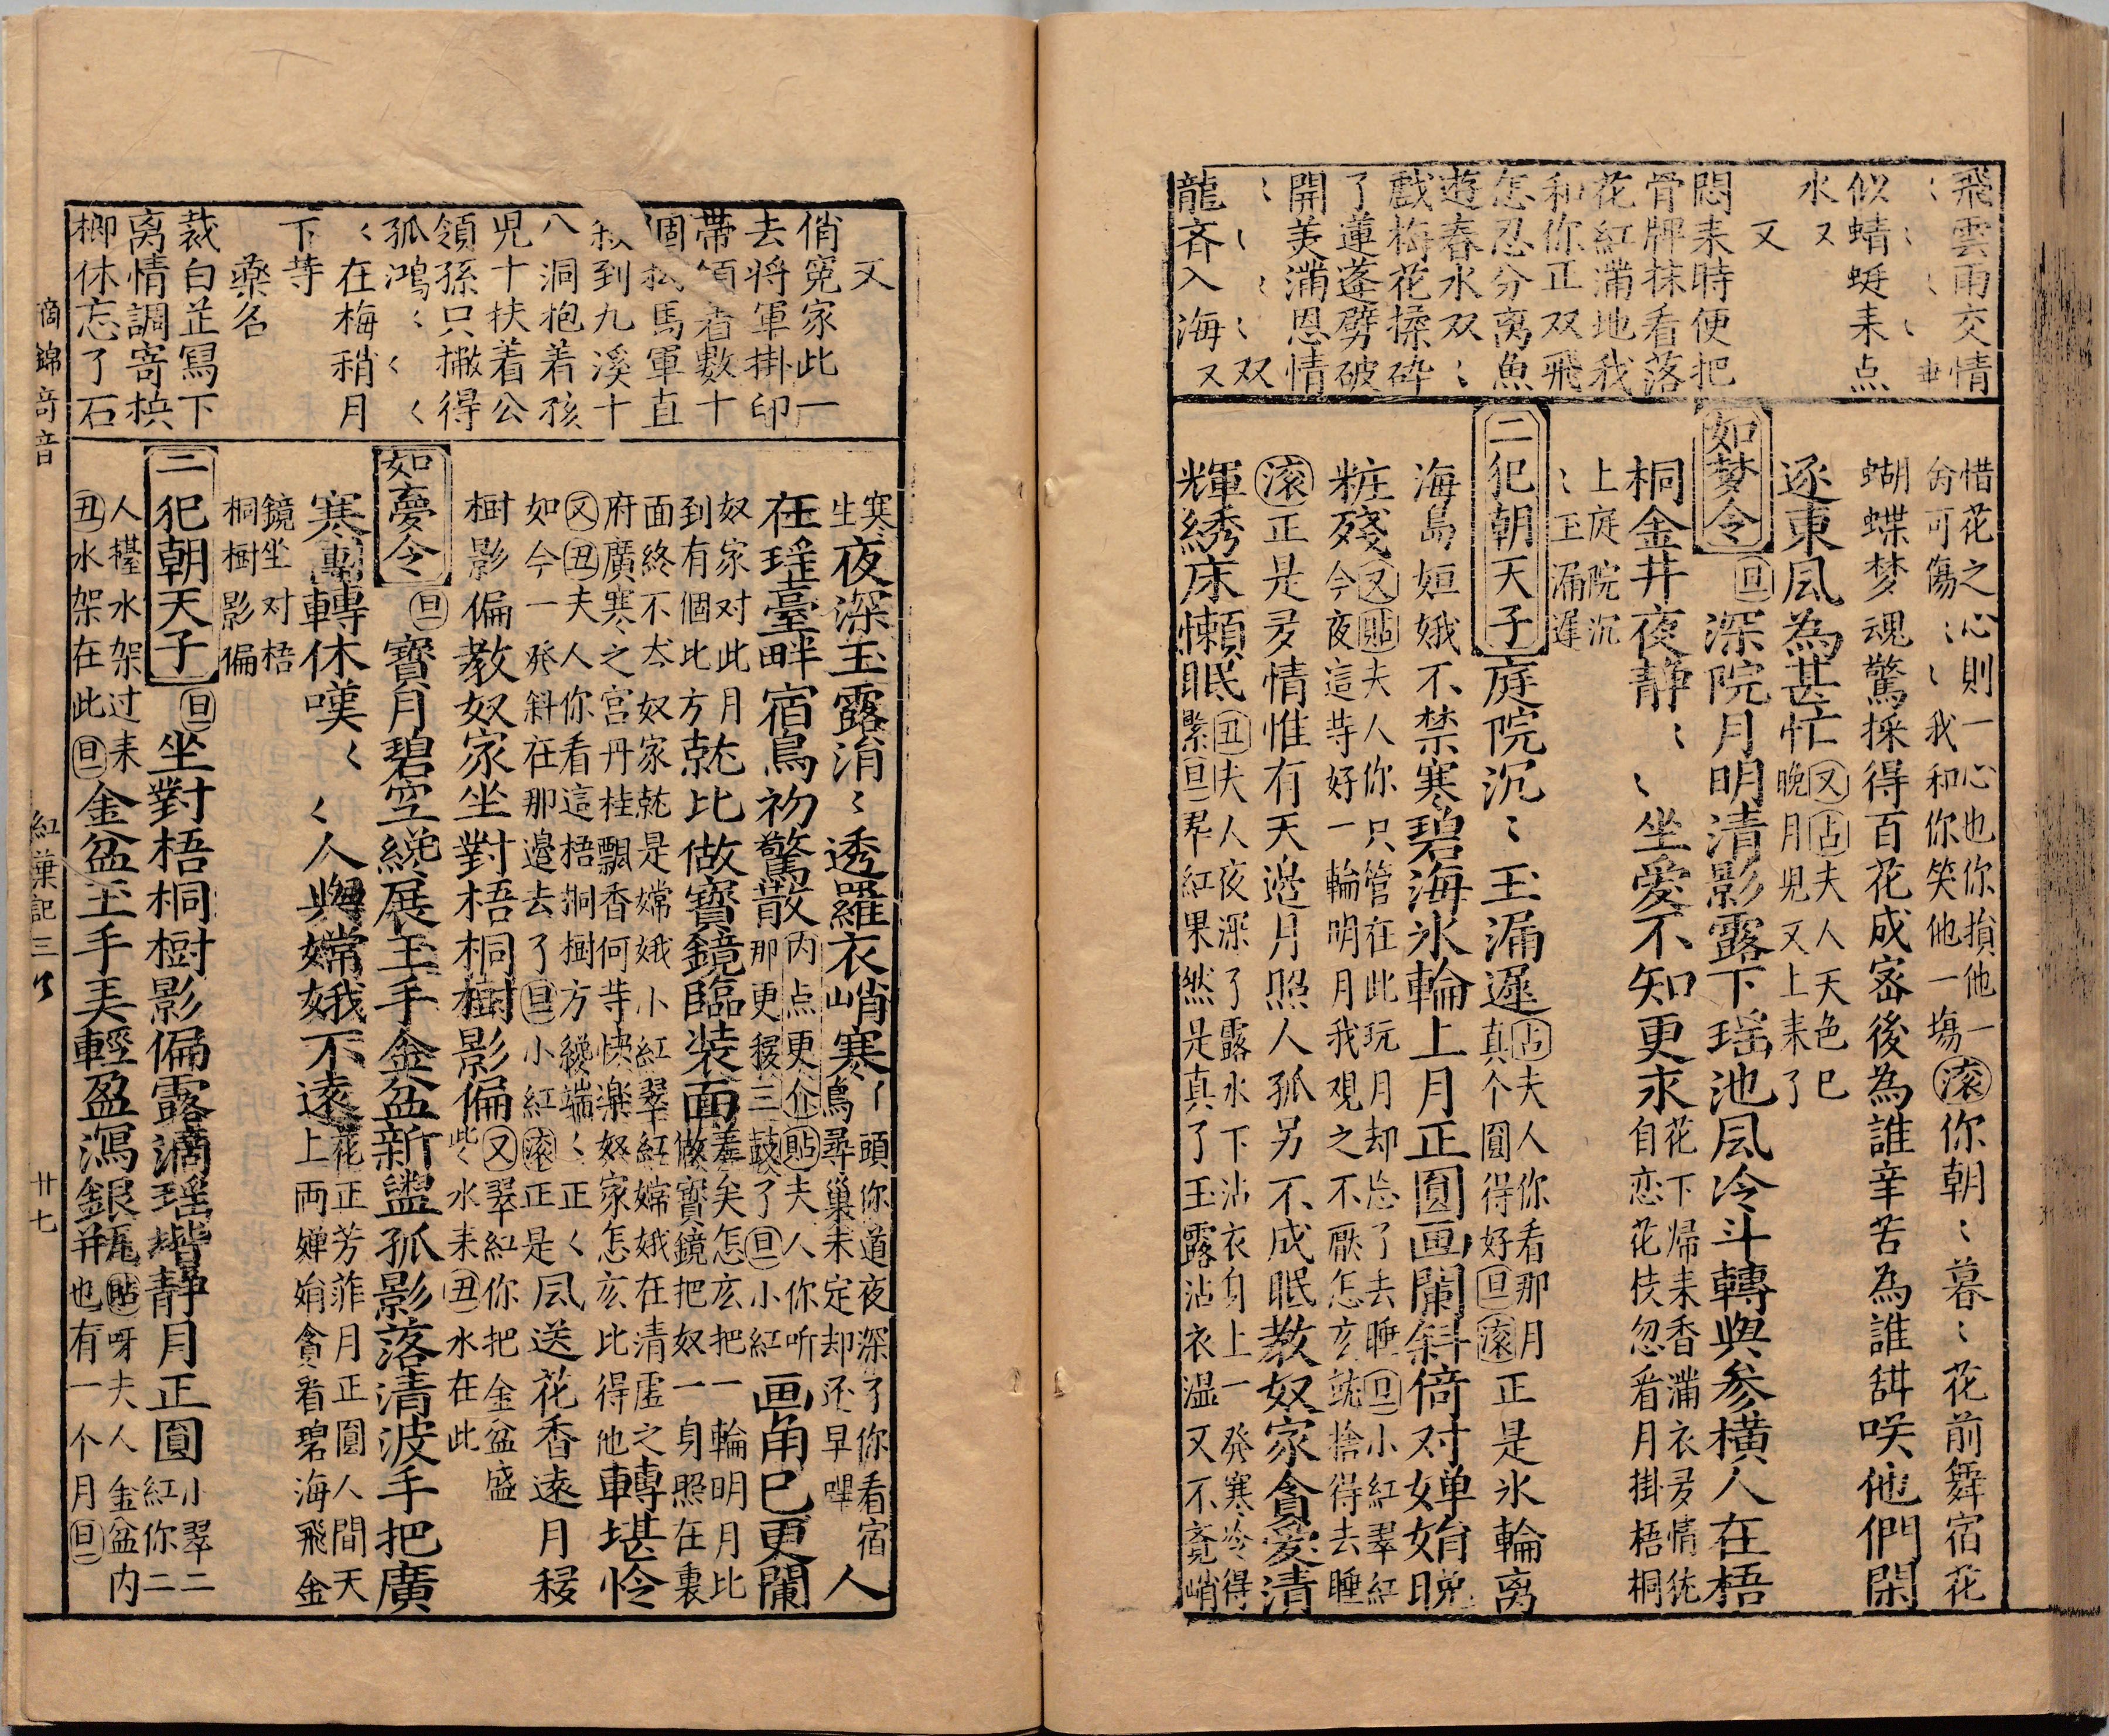 飛雲雨交情
〻〻〻〻
似蜻蜓耒点
水又
又
悶耒時便把
骨牌抹看落
花紅滿地我
和你正双飛
怎忍分离魚
遊春水双〻
戲梅花揉碎
了蓮蓬劈破
開美滿恩情
〻〻〻〻双
龍斉入海又
惜花之心則一心也你損他一
尙可傷〻〻我和你笑他一塲滚你朝〻暮〻花前舞宿花
蝴蝶梦魂驚採得百花成宻後為誰辛苦為誰甜咲他們閑
逐東風為甚忙又占夫人天色已
晚月児又上耒了
如梦令旦深院月明清影露下瑶池風冷斗轉與参横人在梧
桐金井夜静〻〻坐愛不知更求花下歸耒香滿衣多情㐌
自恋花伕忽看月掛梧桐
上庭院沉
〻玉漏遲
二犯朝天子庭院沉〻玉漏遲占夫人你看那月
真个圓得好旦滚正是氷輪离
海島姮娥不禁寒碧海氷輪上月正圓画闌斜倚对嬋娟晚
粧殘又貼夫人你只管在此玩月却忘了去睡旦小紅翠紅
今夜這䒭好一輪明月我观之不厭怎玄就捨得去睡
滚正是多情惟有天邉月照人孤另不成眠教奴家貪愛清
輝綉床懶眠丑夫人夜深了露水下沾衣身上一發寒冷得
緊旦翠紅果然是真了玉露沾衣温又不竟峭
又
俏寃家此一
去将軍掛印
帶領着數十
個馬軍直
殺到九溪十
八洞抱着孩
児十扶着公
領孫只撇得
孤鴻〻〻〻
〻在梅稍月
下䒭
藥名
裁白芷冩下
离情調寄梹
榔休忘了石
寒夜深玉露涓〻透羅衣峭寒丫頭你道夜深了你看宿人
生鳥尋巢未定却还早哩
在瑶臺畔宿鳥初驚散内点更介貼夫人你听
那更稷三鼓了旦小紅画角巳更闌
奴家对此月就比做寳鏡臨装面羞矣怎玄把一輪明月比
到有個比方做寳鏡把奴一身照在裏
面終不厺奴家就是嫦娥小紅翠紅嫦娥在清虛之轉堪怜
府廣寒之宮丹桂飄香何䒭快楽奴家怎玄比得他
又丑夫人你看這梧桐樹方纔端〻正〻風送花香遠月移
如今一発斜在那邉去了旦小紅滚正是
樹影偏教奴家坐對梧桐樹影偏又翠紅你把金盆盛
此〻水耒丑水在此
如夢令旦寳月碧空纔展玉手金盆新盥孤影落清波手把廣
寒轉休嘆〻〻人與嫦娥不遠花正芳菲月正圓人間天
上両嬋娟貪看碧海飛金
鏡坐对梧
桐樹影偏
二犯朝天子旦坐對梧桐樹影偏露滴瑶堦静月正圓小翠二
紅你二
人擡水架过耒旦金盆玉手美輕盈瀉銀瓶貼呀夫人金盆内
丑水架在此也有一个月旦
摘錦奇音
紅葉記三乂
廿七